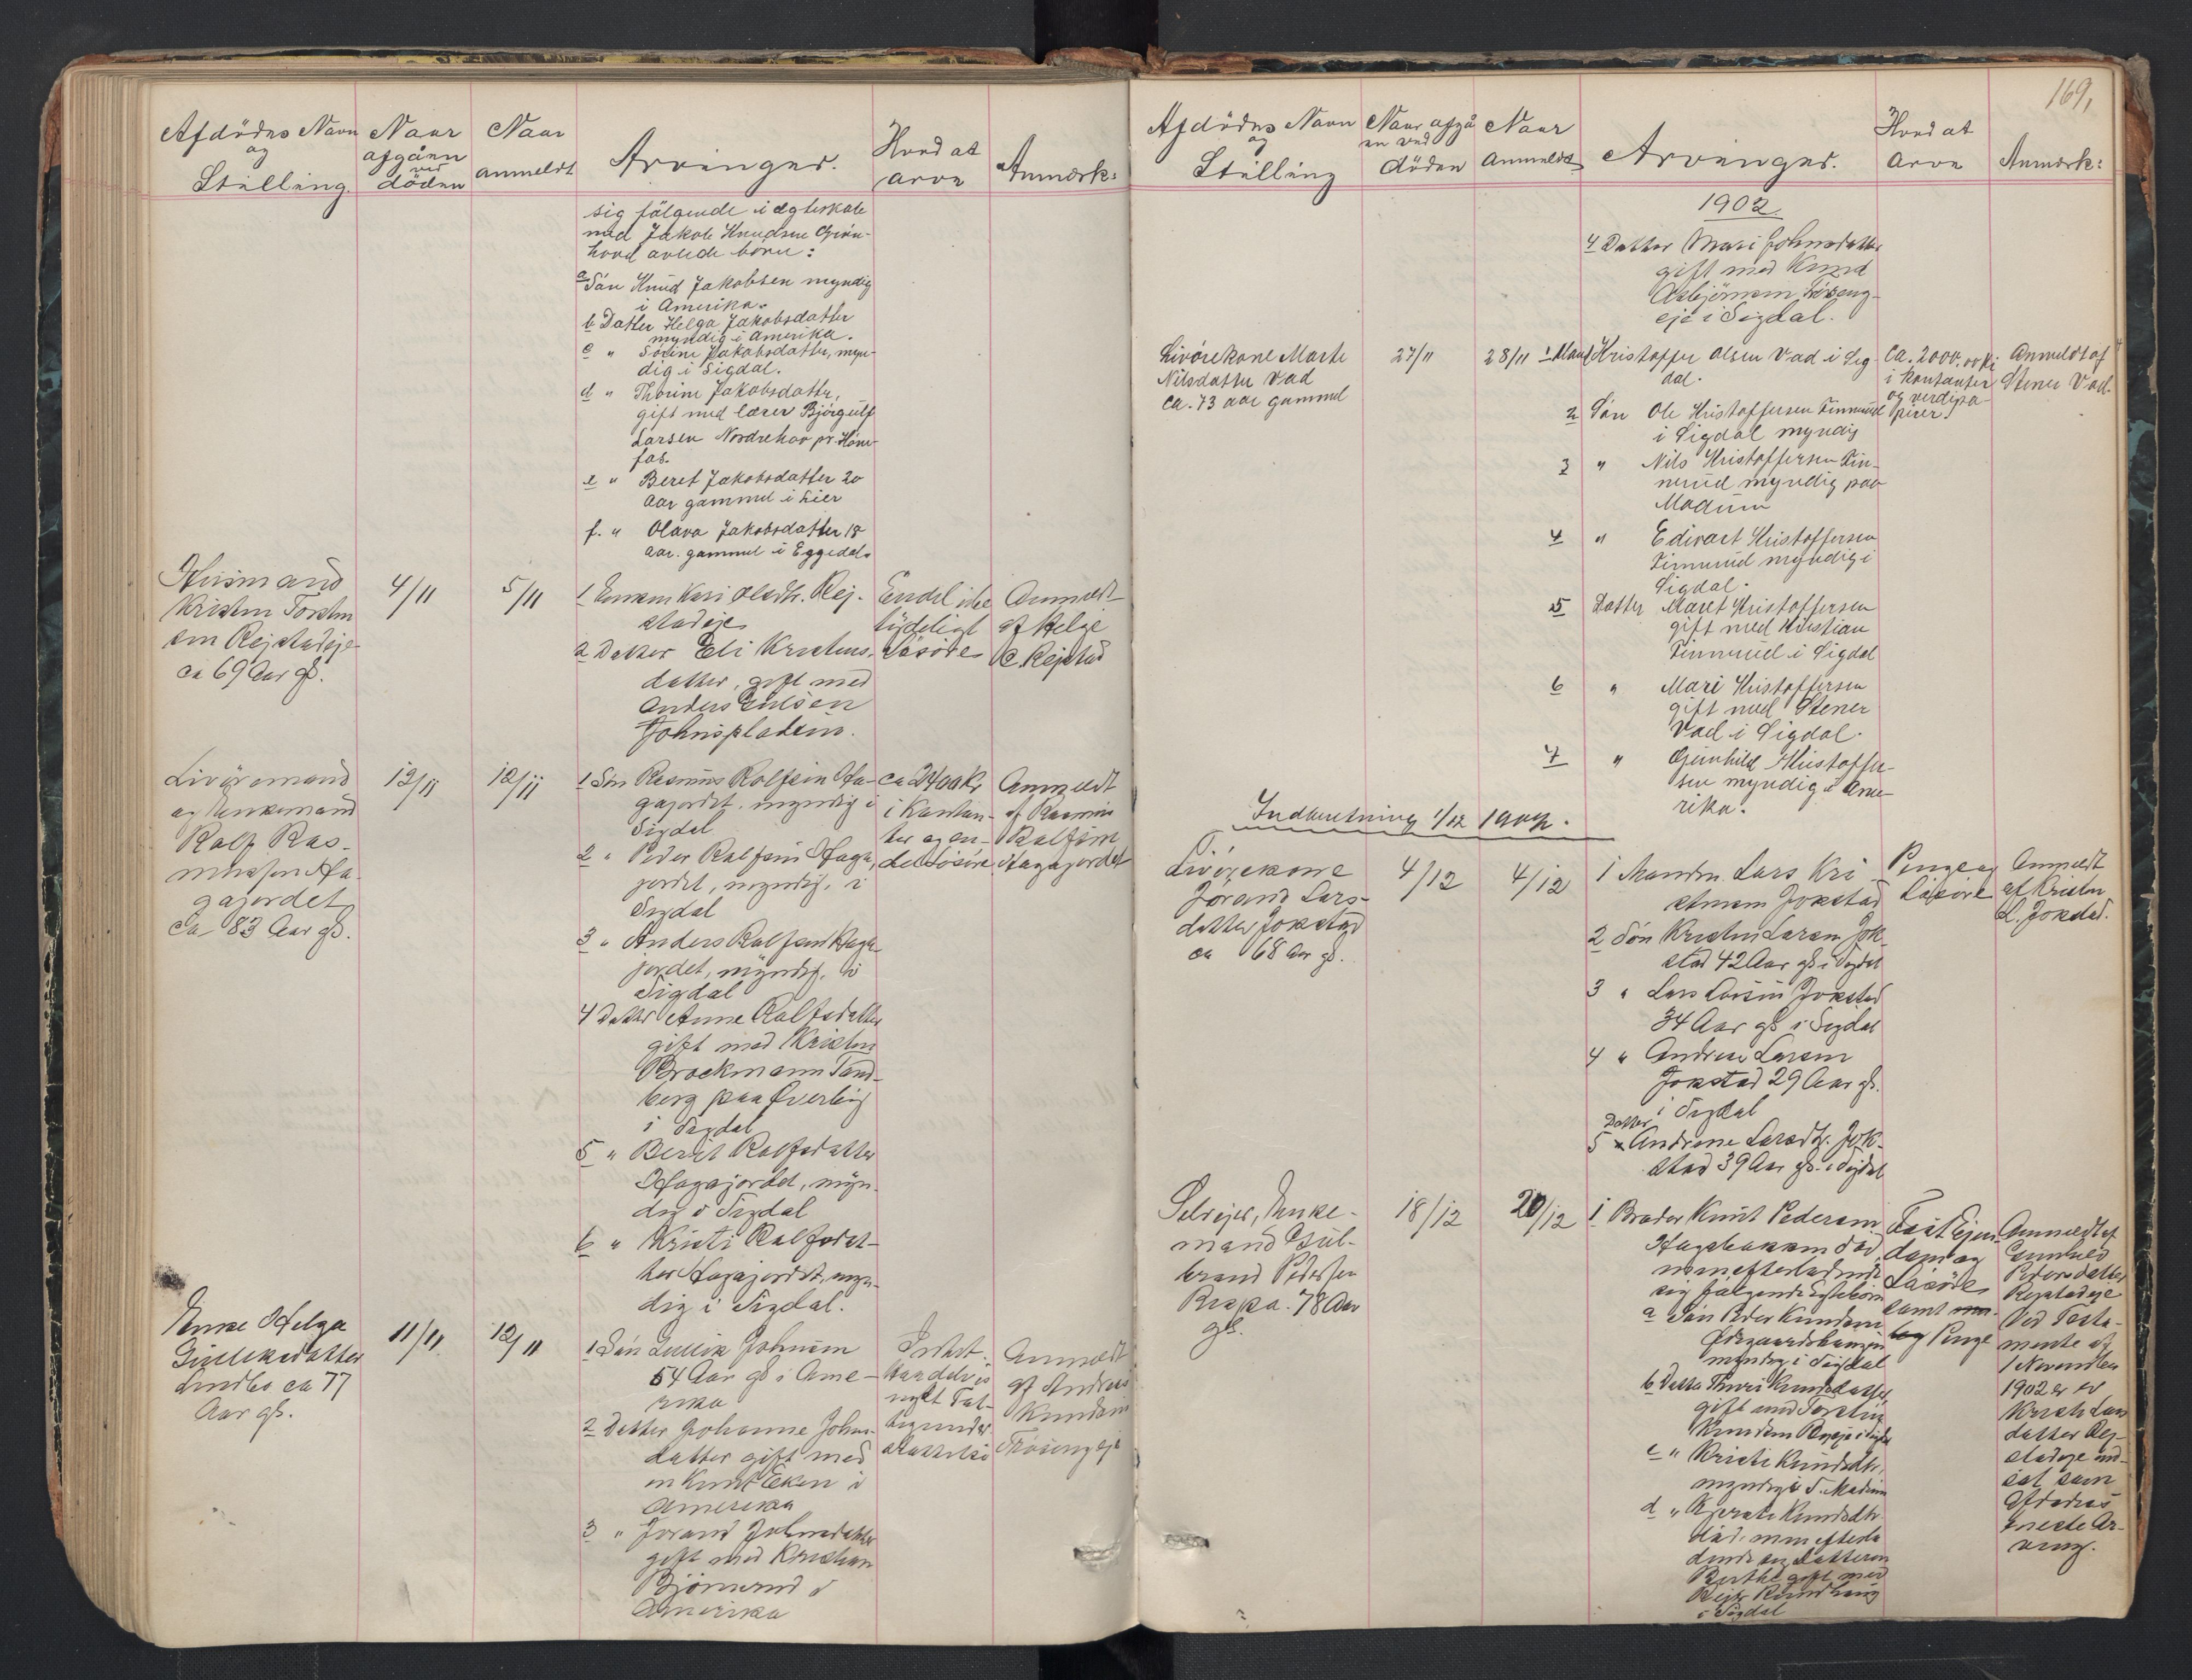 Afdödes Navn
og
Stilling.
Naar
afgåen
ved
döden
Naar
anmeldt
Arvinger.
Hvad at
arve
Anmærk:
sig fölgende i ægteskab
med Jakob Knudsen Grön-
hovd avlede börn:
a Sön Knud Jakobsen myndig
i Amerika.
b Datter Helga Jakobsdatter
myndig i Amerika.
c " Sörine Jakobsdatter, myn-
dig i Sigdal.
d " Thorine Jakobsdatter,
gift med lærer Björgulf
Larsen Nordrehov pr. Höne-
fos.
e " Beret Jakobsdatter 20
aar gammel i Lier
f. " Olava Jakobsdatter 18
aar. gammel i Eggedal.
Husmand
Kristen Torsten
sen Rejstadeje
ca 69 Aar gl.
4/11
5/11
1 Enken Kari Olsdtr. Rej-
stadeje
2 Datter Eli Kristens-
datter, gift med
Anders
Johnspladsen.
En del ube
tydeligt
Lösöre
Anmeldt
af Helge
C. Rejstad
Livöremand
og Enkemand
Rolf Ras-
mussen Ha-
gajordet
ca 83 Aar gl.
12/11
12/11
1 Sön Rasmus Rolfsen Ha-
gajordet, myndig i
Sigdal
2 " Peder Rolfsen Haga-
jordet, myndig, i
Sigdal
3 " Anders Rolfsen Haga-
jordet, myndig, i
Sigdal
4 Datter Anne Rolfsdatter
gift med Kristen
Brockmann Tand-
berg paa Överby
i Sigdal
5 " Berit Rolfsdatter
Hagajordet, myn-
dig i Sigdal
6 " Kristi Rolfsdat-
ter Hagajordet, myn-
dig i Sigdal.
ca 2400 Kr
i Kontan-
ter og en-
del Lösöre
Anmeldt
af Rasmus
Rolfsen
Hagajordet
Enke Helga
Gulliksdatter
Lindbo ca 77
Aar gl.
11/11
12/11
1 Sön Gullik Johnsen
54 Aar gl i Ame-
rika
2 Datter Johanne Johns-
datter gift med
en Knut Eken i
Amerika
3 " Jorand Johnsdatter
gift med Kristian
Björnerud i
Amerika
Intet.
Har delvis
nydt Fat-
tigunder-
stöttelse
Anmeldt
af Andreas
Knudsen
169,
Afdödes Navn
og
Stilling
Naar afgå
en ved
döden
Naar
anmeldt
Arvinger.
Hvad at
arve
Anmærk:
1902
4 Datter Mari Johnsdatter
gift med Knud
Asbjörnsen
eje i Sigdal.
Livörekone Marte
Nilsdatter Vad
ca. 73 aar gammel
27/11
28/11
1 Mand Kristoffer Olsen Vad i Sig
dal.
2 Sön Ole Kristoffersen Finnerud
i Sigdal myndig
3 " Nils Kristoffersen Fin-
nerud myndig paa
Modum
4 " Edvart Kristoffersen
Finnerud myndig i
Sigdal.
5 Datter Maret Kristoffersen
gift med Kristian
Finnerud i Sigdal
6 " Mari Kristoffersen
gift med Stener
Vad i Sigdal.
7 " Gunhild Kristoffer-
sen myndig i Ame-
rika.
Ca. 2000.00 kr
i kontanter
og verdipa-
pirer.
Anmeldt af
Stener Vad.
Indberetning 1/12 1902.
Livörekone
Jorand Lars-
datter Jokstad
ca 68 Aar gl.
4/12
4/12
1 Manden Lars Kri
stensen Jokstad
2 Sön Kristen Larsen Jok-
stad 42 Aar gl i Sigdal
3 " Lars Larsen Jokstad
34 Aar gl i Sigdal
4 " Andreas Larsen
Jokstad 29 Aar gl.
i Sigdal
Datter
5 Andrine Larsdtr. Jok-
stad 39 Aar gl. i Sigdal
Penge og
Lösöre
Anmeldt
af Kristen
L. Jokstad.
Selvejer, Enke-
mand Gul-
brand Pedersen
78 Aar
gl.
18/12
20/12
1 Broder Knut Pedersen
Hagabakken död
men efterladende
sig fölgende Ægtebörn
a Sön Peder Knudsen
myndig i Sigdal
b Datter Thori Knudsdatter
gift med Torsten
Knudsen
c " Kristi Knudsdtr.
myndig i Modum
d " Kjersti Knudsdtr
död. men efterla
dende sig Datteren
Berthe gift med
i Sigdal
Fast Ejen-
dom og
Lösöre
samt
Penge
Anmeldt af
Gunhild
Pedersdatter
Rejstadeje
Ved Testa-
mente af
1 November
1902 er
Kristi Lars
datter Rej-
stadeje ind-
sat som
Afdödes
eneste Ar-
ving.